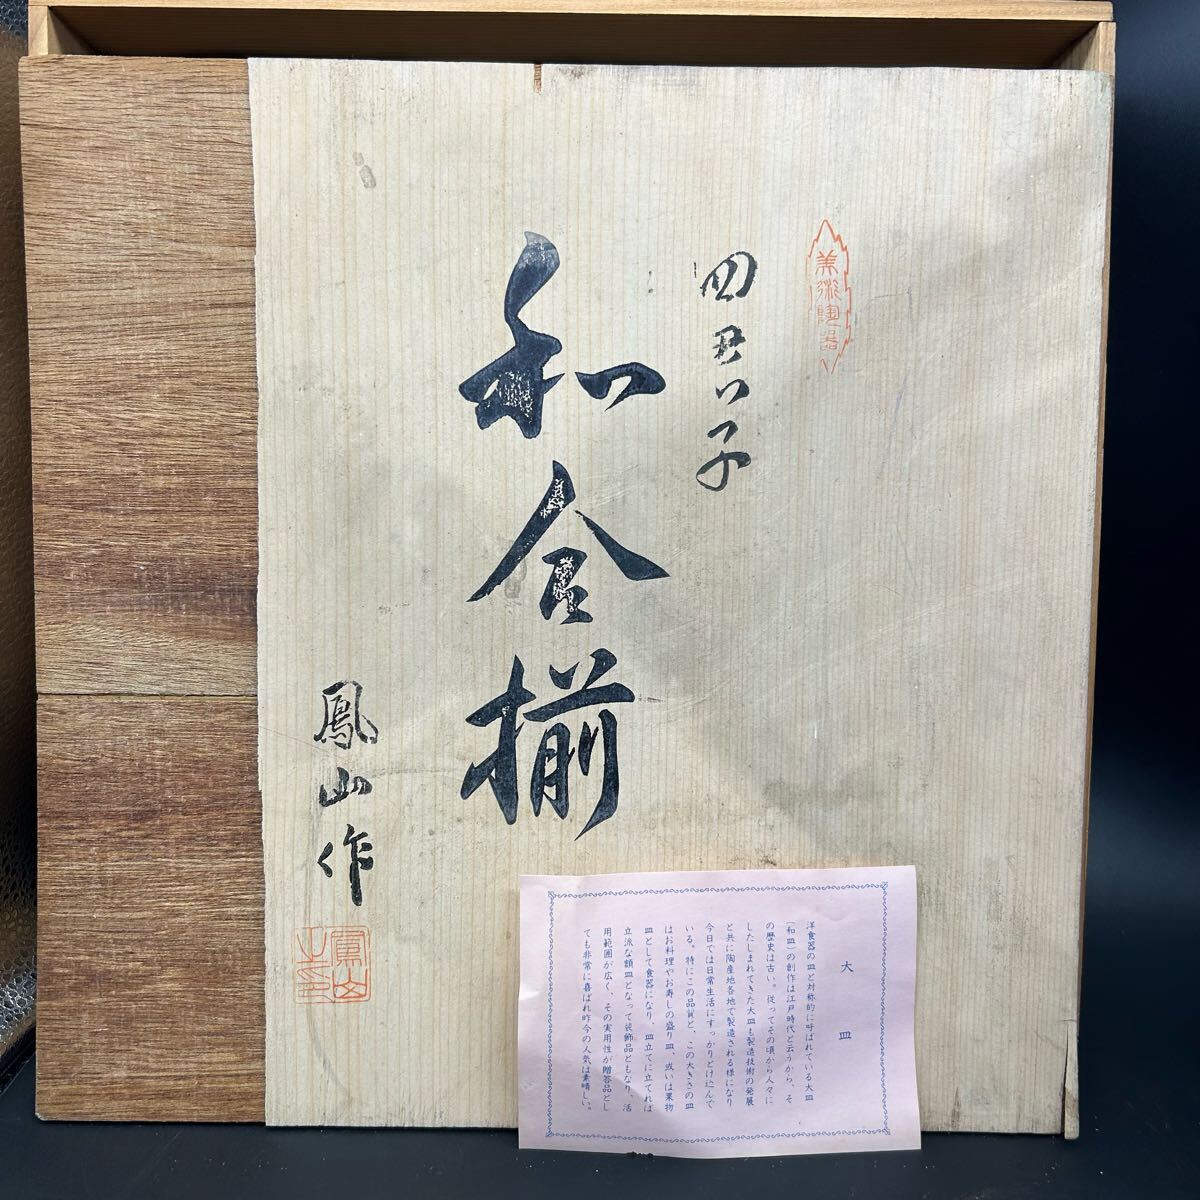 美術陶器
四君子
和合揃
鳳山作
鳳山之印
大皿
洋食器の皿と対称的に呼ばれている大皿
(和皿)の創作は江戸時代と云うから、そ
の歴史は古い。従ってその頃から人々に
したしまれてきた大皿も製造技術の発展
と共に陶産地各地で製造される様になり
今日では日常生活にすっかりとけ込んで
いる。特にこの品質と、この大きさの皿
はお料理やお寿しの盛り皿、或いは果物
皿として食器になり、皿立てに立てれば
立派な額皿となって装飾品ともなり、活
用範囲が広く、その実用性が贈答品とし
ても非常に喜ばれ昨今の人気は素晴しい。